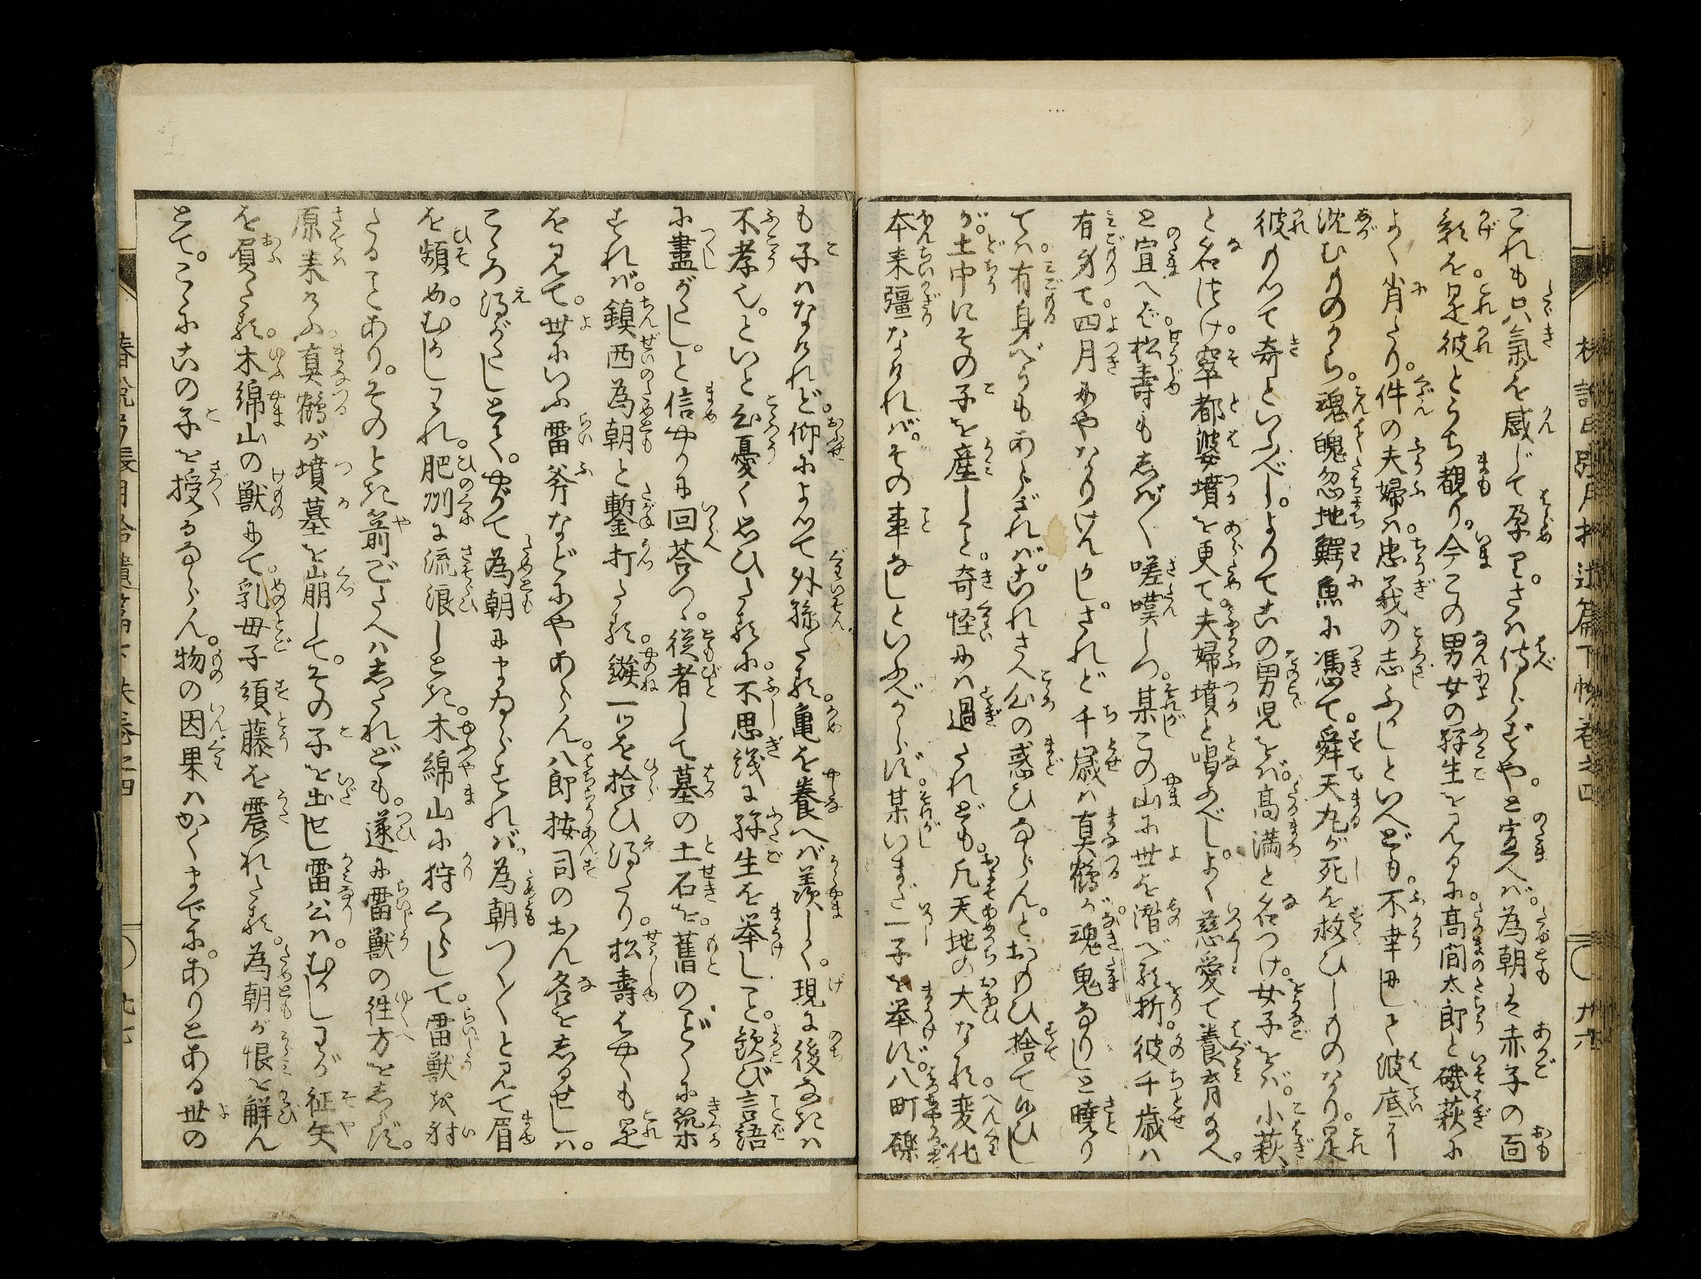 これも只氣を感じて孕り。さは侍らずや。と宣へば。為朝は赤子の面
影を是彼とうち覩り。今この男女の孖生を見るに。高間太郎と磯萩に
よく肖たり。件の夫婦は。忠義の志ふかしといへども。不幸にして波底に
沈むものから。魂魄忽地鰐魚に憑て。舜天丸が死を救ひしものなり。是
彼もつて奇といふべし。よりてこの男児をば。高満と名つけ。女子をば。小萩
と名づけ。卒都婆墳を更て夫婦墳と唱ふべし。よく慈愛て養育給へ。
と宣へば松壽もしば〳〵嗟嘆しつ。某この山に世を潜べる折。彼千歳は
有身て。四月にやなりけんかし。されど千歳は真鶴が。魂鬼なりしと暁り
ては。有身べうもあらざれば。これさへ公の惑ひならん。とおもひ捨て候ひし
が。土中にその子を産しこと。奇怪には過たれども。凡天地の大なる。変化
本来彊なければ。その事なしといふべからず。某いまだ一子を挙ず。八町礫
も子はなけれど。仰によつて外孫なる。亀を養へば羨しく。現に後なきは
不孝也。といと心憂く思ひたるに。不思議に孖生を挙しこと。歓び言語
に盡がたし。と信やかに回荅つゝ。従者して墓の土石を。舊のごとくに築
すれば。鎮西為朝と鏨打たる。鏃一ツを拾ひ得たり。松壽はやくも是
を見て。世にいふ雷斧などにやあらん。八郎按司のおん名をしるせしは。
こゝろ得がたしとて。やがて為朝にまゐらすれば。為朝つく〳〵と見て眉
を顰め。むかしわれ。肥州に流浪しとき。木綿山に狩くらして。雷獣を射
たることあり。そのとき箭ごたへはしたれども。遂に雷獣の往方をしらず。
原来けふ。真鶴が墳墓を崩して。その子を出せし雷公は。むかしわが征矢
を屓たる。木綿山の獣にて。乳母子須藤を震れたる。為朝が恨を觧ん
とて。こゝにこの子を授るならん。物の因果はかくまでに。ありとある世の